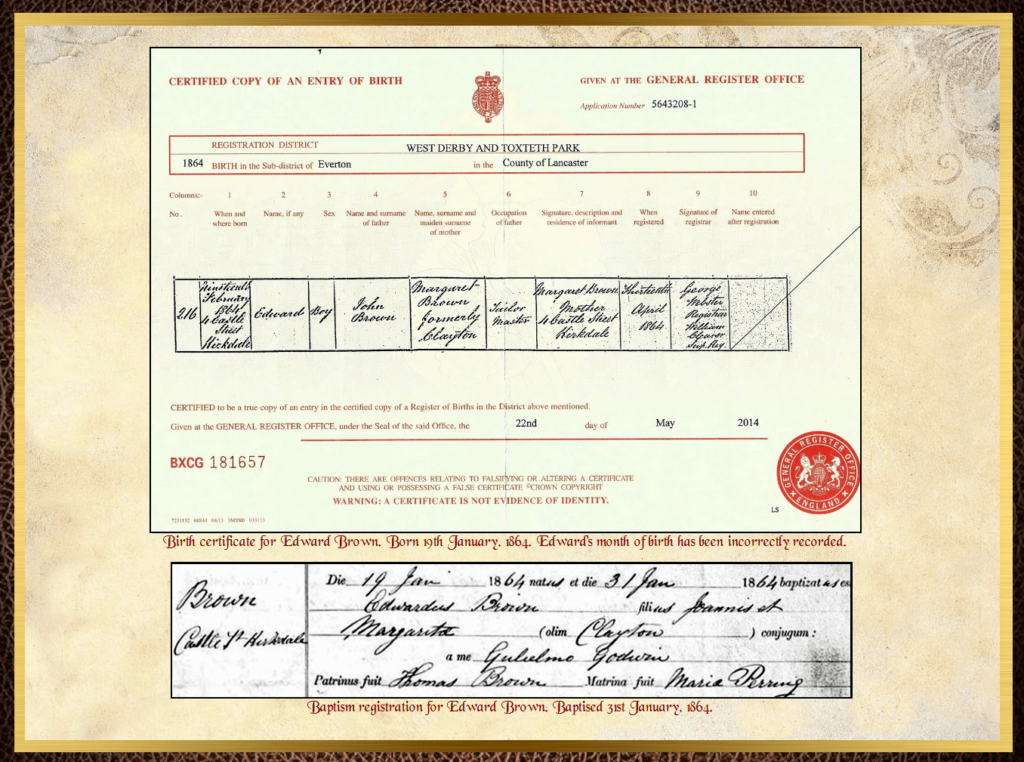 CERTIFIED COPY OF AN ENTRY OF BIRTH
GIVEN AT THE GENERAL REGISTER OFFICE
Application Number 5643208-1
REGISTRATION DISTRICT WEST DERBY AND TOXTETH PARK
1864 BIRTH in the Sub-district of Everton in the County of Lancaster
Columns:- 1 2 3 4 5 6 7 8 9 10
No. When and where born Name, if any Sex Name and surname of father Name, surname and maiden surname of mother Occupation of father Signature, description and residence of informant When registered Signature of registrar Name entered after registration
216
Nineteenth
February
1864
4 Castle
Street
Kirkdale
Edward
Boy
John
Brown
Margaret
Brown
formerly
Clayton
Tailor
Master
Margaret Brown
Mother
4 Castle Street
Kirkdale
Thirtieth
April
1864
George
Webster
Registrar
William
Cleaver
Sup. Reg.
CERTIFIED to be a true copy of an entry in the certified copy of a Register of Births in the District above mentioned.
Given at the GENERAL REGISTER OFFICE, under the Seal of the said Office, the 22nd day of May 2014
BXCG 181657
CAUTION: THERE ARE OFFENCES RELATING TO FALSIFYING OR ALTERING A CERTIFICATE
AND USING OR POSSESSING A FALSE CERTIFICATE ©CROWN COPYRIGHT
WARNING: A CERTIFICATE IS NOT EVIDENCE OF IDENTITY.
GENERAL REGISTER OFFICE
ENGLAND
LS
Birth certificate for Edward Brown. Born 19th January, 1864. Edward's month of birth has been incorrectly recorded.
Brown
Castle St Kirkdale
Die 19 Jan 1864 natus et die 31 Jan 1864 baptizatus es
Edwardus Brown filius Joannis et
Margarita (olim Clayton ) conjugum :
a me Gulielmo Godwin
Patrinus fuit Thomas Brown Matrina fuit Maria Perring
Baptism registration for Edward Brown. Baptised 31st January, 1864.